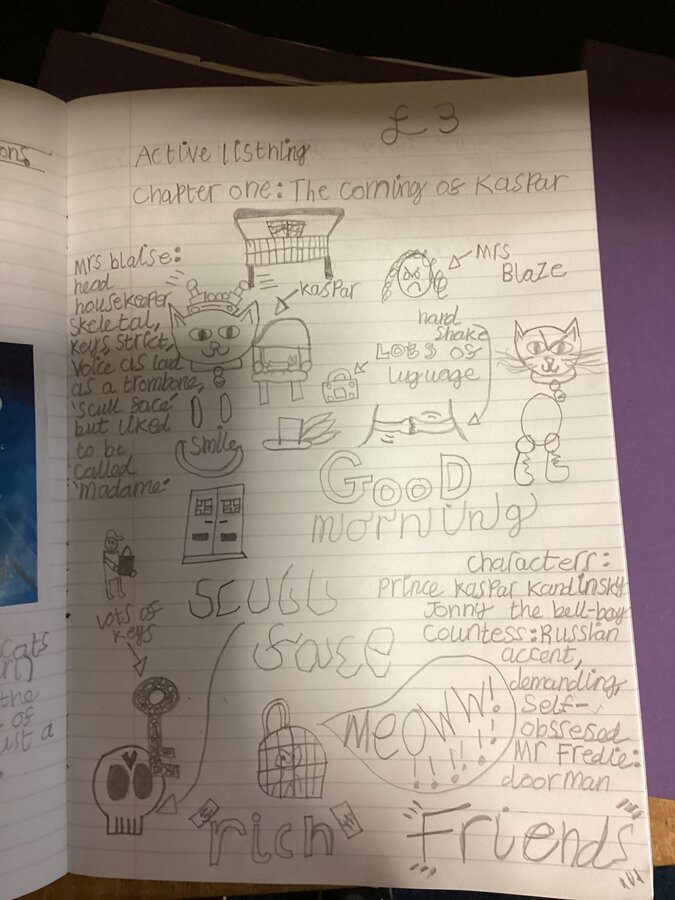 ons
£3
Active listning
Chapter one: The coming of Kaspar
Mrs blaise:
head
housekeeper,
skeletal,
keys, strict,
voice as loud
as a trombone,
'scull face'
but liked
to be
called
'madame'
kaspar
Mrs
Blaze
hand
shake
Lots of
luguage
smile
GOOD
morning
lots of
keys
scull
face
characters:
Prince Kaspar Kandinsky
Jonny the bell-boy
Countess: Russian
accent,
demanding,
self-
obssesed
Mr Fredie:
doorman
MEOWW!
!!!!!!
rich
Friends
cats
the
of
ust a